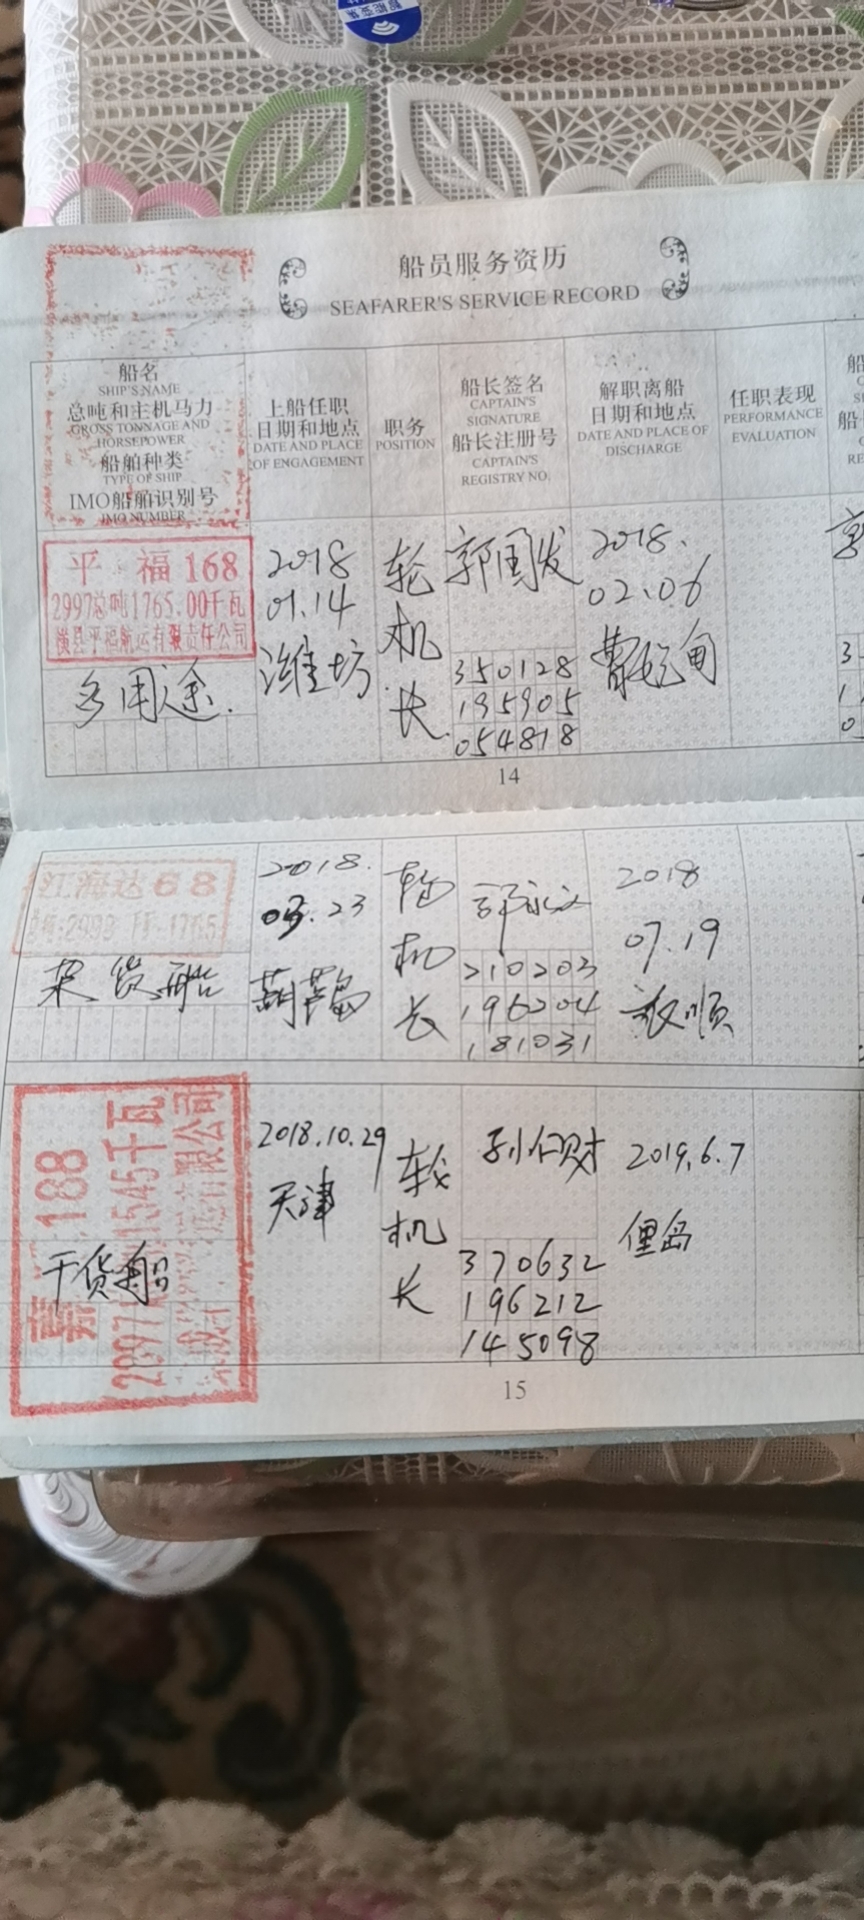 船员服务资历
SEAFARER'S SERVICE RECORD
船名
SHIP'S NAME
总吨和主机马力
GROSS TONNAGE AND
HORSEPOWER
船舶种类
TYPE OF SHIP
IMO船舶识别号
IMO NUMBER
上船任职
日期和地点
DATE AND PLACE
OF ENGAGEMENT
职务
POSITION
船长签名
CAPTAIN'S
SIGNATURE
船长注册号
CAPTAIN'S
REGISTRY NO.
解职离船
日期和地点
DATE AND PLACE OF
DISCHARGE
任职表现
PERFORMANCE
EVALUATION
平福168
2997总吨1765.00千瓦
横县平福航运有限责任公司
多用途.
2018
01.14
潍坊
轮机长.
郭国发
350128
195905
054818
2018.
02.06
曹妃甸
14
江海达68
杂货船
2018.
03.23
葫芦岛
轮机长
210203
196204
181031
2018
07.19
15
188
2997
1545千瓦
有限公司
干货船
2018.10.29
天津
轮机长
孙仁财
370632
196212
145098
2019.6.7
俚岛